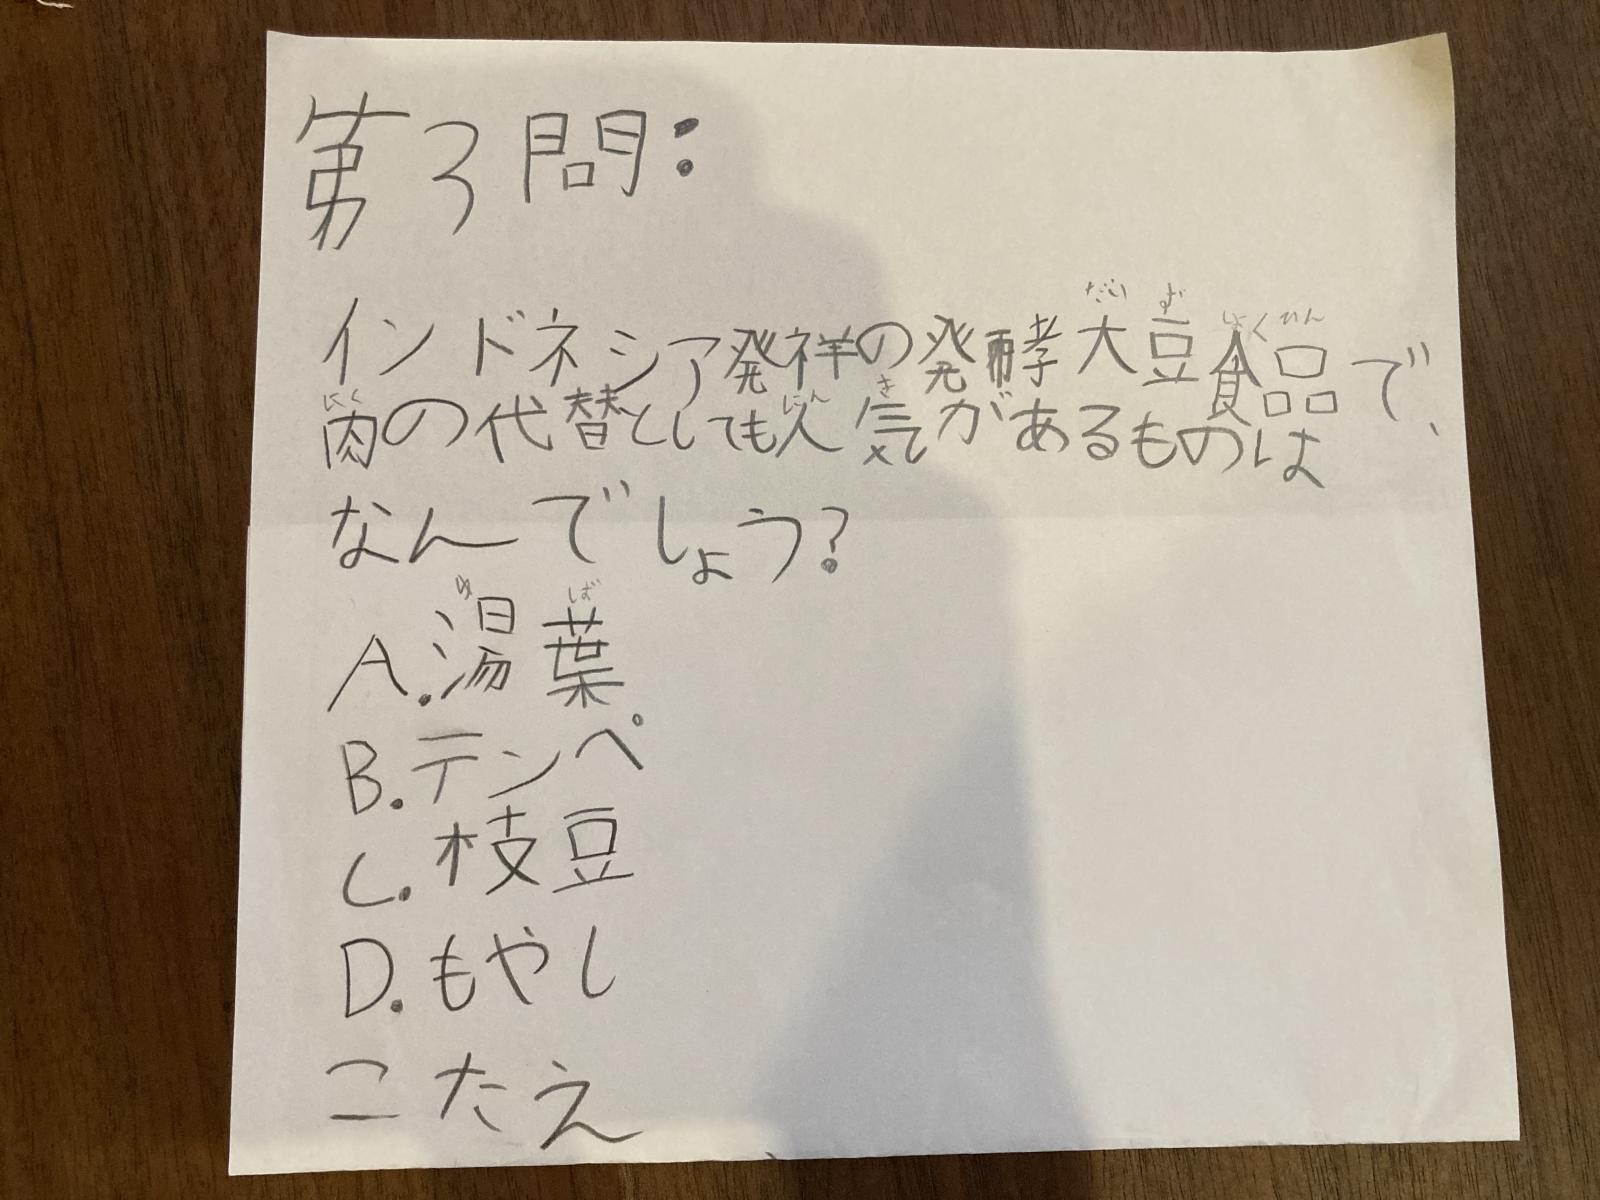 第3問:
インドネシア発祥の発酵大豆食品で、
肉の代替としても人気があるものは
なんでしょう?
A.湯葉
B.テンペ
C.枝豆
D.もやし
こたえ